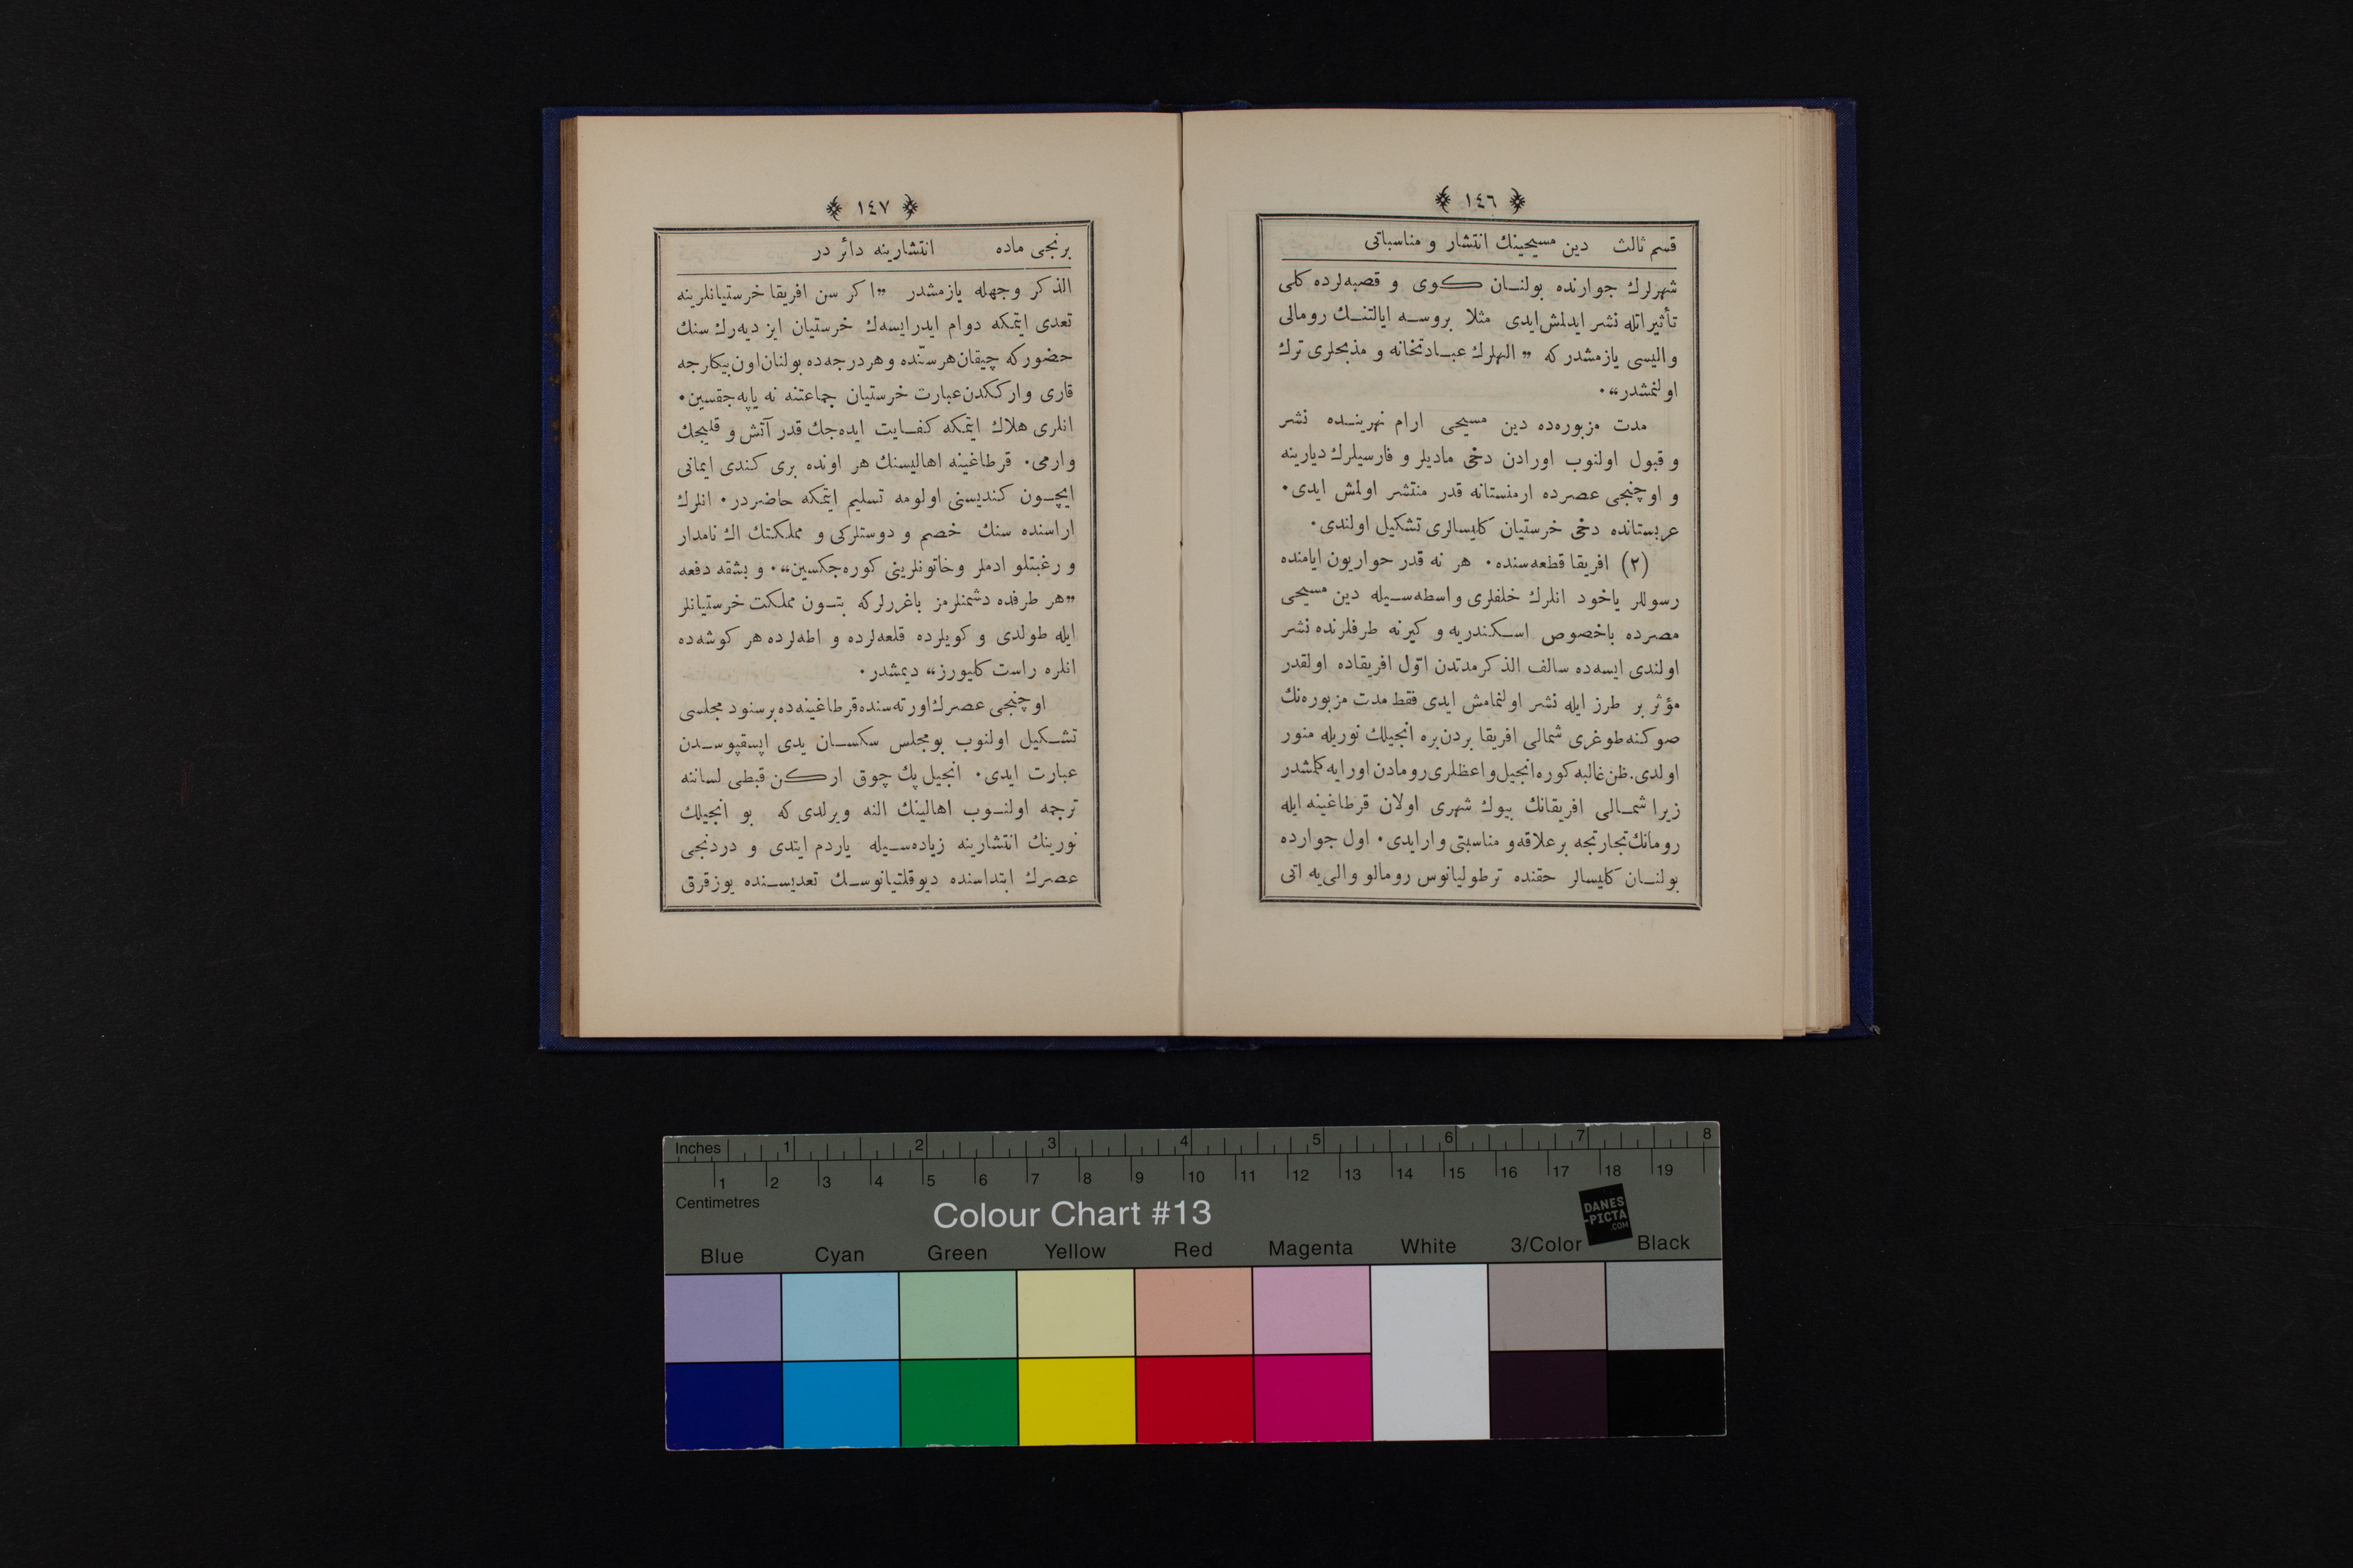 ﴿ ١٤٦ ﴾
قسم ثالث دين مسيحينك انتشار و مناسباتى
شهرلرك جوارنده بولنان كوى و قصبه‌لرده كلى
تأثيراتله نشر ايدلمش‌ايدى مثلا بروسه ايالتنك رومالى
واليسى يازمشدر كه „ الهلرك عبادتخانه و مذبحلرى ترك
اولنمشدر“.
مدت مزبوره‌ده دين مسيحى ارام نهرينده نشر
و قبول اولنوب اورادن دخى ماديلر و فارسيلرك ديارينه
و اوچنجى عصرده ارمنستانه قدر منتشر اولمش ايدى.
عربستانده دخى خرستيان كليسالرى تشكيل اولندى.
(٢) افريقا قطعه‌سنده. هر نه قدر حواريون ايامنده
رسوللر ياخود انلرك خلفلرى واسطه‌سيله دين مسيحى
مصرده باخصوص اسكندريه و كيرنه طرفلرنده نشر
اولندى ايسه‌ده سالف الذكر مدتدن اوّل افريقاده اولقدر
مؤثر بر طرز ايله نشر اولنمامش ايدى فقط مدت مزبوره‌نك
صوكنه طوغرى شمالى افريقا بردن‌بره انجيلك نوريله منور
اولدى. ظن غالبه كوره انجيل واعظلرى رومادن اورايه كلمشدر
زيرا شمالى افريقانك بيوك شهرى اولان قرطاغينه ايله
رومانك تجارتجه بر علاقه و مناسبتى وار ايدى. اول جوارده
بولنان كليسالر حقنده ترطوليانوس رومالو والى‌يه اتى
﴿ ١٤٧ ﴾
برنجى ماده انتشارينه دائر در
الذكر وجهله يازمشدر „اكر سن افريقا خرستيانلرينه
تعدى ايتمكه دوام ايدرايسه‌ك خرستيان ايز ديه‌رك سنك
حضوركه چيقان هر سنّده و هر درجه‌ده بولنان اون بيكلرجه
قارى وارككدن عبارت خرستيان جماعتنه نه ياپه‌جقسين.
انلرى هلاك ايتمكه كفايت ايده‌جك قدر آتش و قليجك
وارمى. قرطاغينه اهاليسنك هر اونده برى كندى ايمانى
ايچون كنديسنى اولومه تسليم ايتمكه حاضردر. انلرك
اراسنده سنك خصم و دوستلركى و مملكتك اك نامدار
و رغبتلو ادملر و خاتونلرينى كوره‌جكسين“. و بشقه دفعه
„هر طرفده دشمنلرمز باغررلركه بتون مملكت خرستيانلر
ايله طولدى و كويلرده قلعه‌لرده و اطه‌لرده هر كوشه‌ده
انلره راست كليورز“ ديمشدر.
اوچنجى عصرك اورته‌سنده قرطاغينه‌ده بر سنود مجلسى
تشكيل اولنوب بو مجلس سكسان يدى اپسقپوسدن
عبارت ايدى. انجيل پك چوق اركن قبطى لساننه
ترجمه اولنوب اهالينك النه ويرلدى كه بو انجيلك
نورينك انتشارينه زياده‌سيله ياردم ايتدى و دردنجى
عصرك ابتداسنده ديوقلتيانوسك تعديسنده يوزقرق
Inches 1 2 3 4 5 6 7 8
1 2 3 4 5 6 7 8 9 10 11 12 13 14 15 16 17 18 19
Centimetres
Colour Chart #13
DANES
-PICTA
.COM
Blue Cyan Green Yellow Red Magenta White 3/Color Black